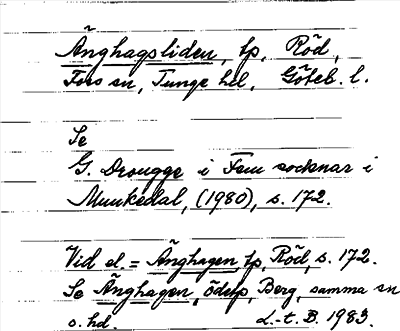 Änghagsliden, tp, Röd,
Foss sn, Tunge hd, Göteb. l.
Se
G. Drougge i Fem socknar i
Munkedal, (1980), s. 172.
Vid el. = Änghagen tp, Röd, s. 172.
Se Änghagen, ödetp, Berg, samma sn
o. hd. L.-t. B. 1983.